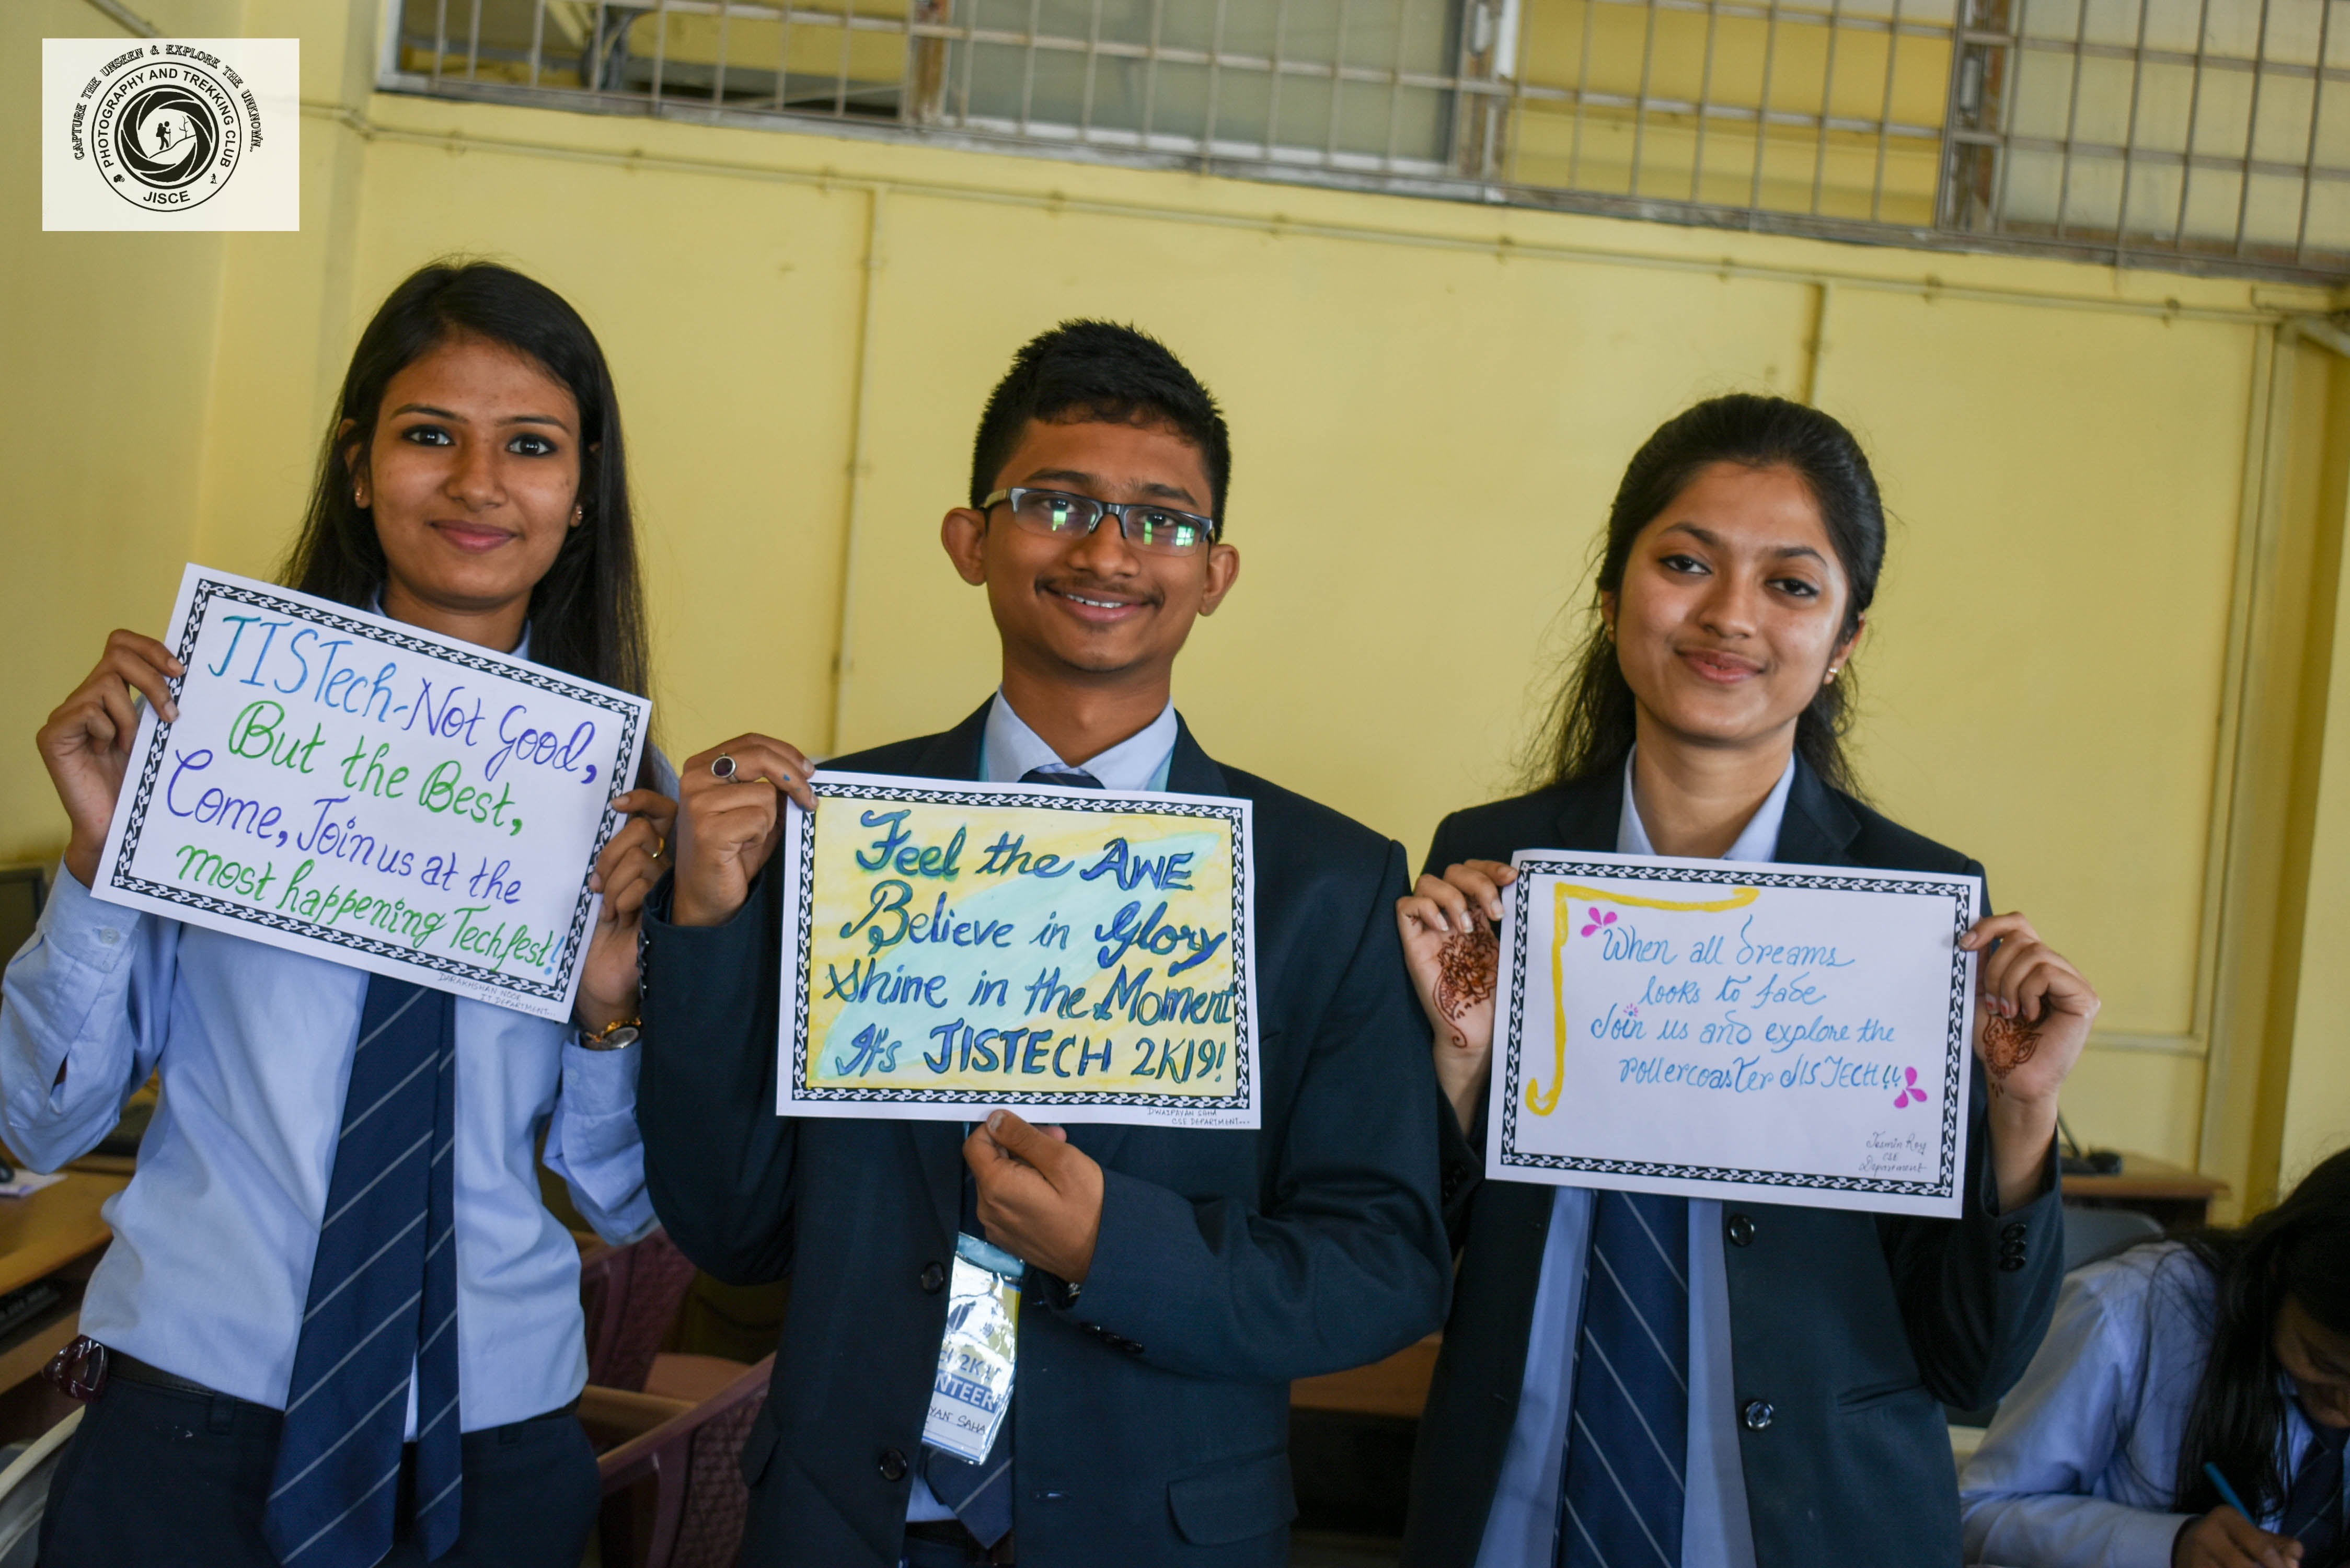 CAPTURE THE UNSEEN & EXPLORE THE UNKNOWN..
PHOTOGRAPHY AND TREKKING CLUB
JISCE
JISTech-Not Good,
But the Best,
Come, Join us at the
most happening Techfest!!
DARAKHSHAN NOOR
IT DEPARTMENT...
Feel the AWE
Believe in Glory
Shine in the Moment
It's JISTECH 2K19!
DWAIPAYAN SAHA
CSE DEPARTMENT...
When all dreams
looks to fade
Join us and explore the
rollercoaster JISTECH!!
Jesmin Roy
CSE
Department
2K1
NTEER
YAN SAHA